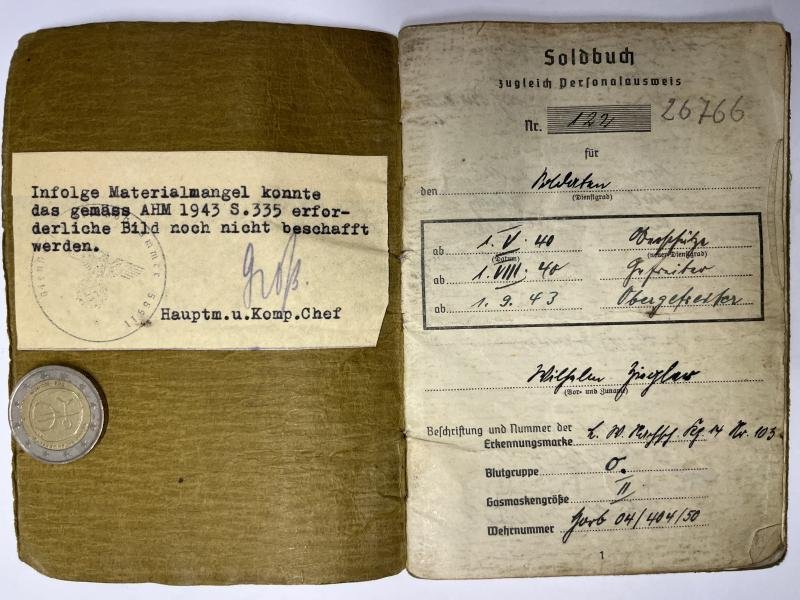 Infolge Materialmangel konnte
das gemäss AHM 1943 S.335 erfor-
derliche Bild noch nicht beschafft
werden.
Groß.
Hauptm.u.Komp.Chef
Soldbuch
zugleich Personalausweis
Nr. 122 26766
für
den Soldaten
(Dienstgrad)
ab 1. V. 40
(Datum) (neuer Dienstgrad)
ab 1. VIII. 40 Gefreiter
ab 1. 9. 43 Obergefreiter
Wilhelm Ziegler
(Vor- und Zuname)
Beschriftung und Nummer der
Erkennungsmarke Nr. 103
Blutgruppe O.
Gasmaskengröße II
Wehrnummer Horb 04/404/50
1